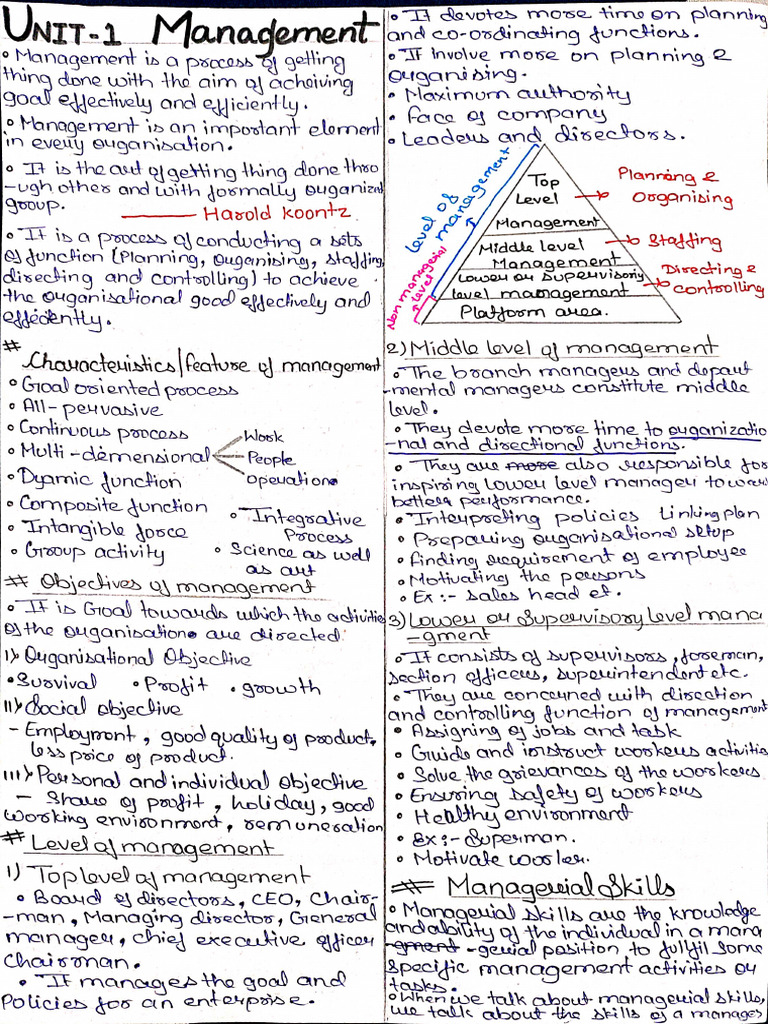 UNIT-1 Management
• Management is a process of getting
thing done with the aim of acheiving
goal effectively and efficiently.
• Management is an important element
in every organisation.
• It is the art of getting thing done thro
-ugh other and with formally organized
group.
—— Harold Koontz
• It is a process of conducting a sets
of function (Planning, Organising, staffing,
directing and controlling) to achieve
the organisational good effectively and
effeciently.
# Characteristics/feature of management
• Goal oriented process
• All-pervasive
• Continuous process
• Multi-demensional
Work
People
Operation
• Dyamic function
• Composite function
• Intangible force
• Group activity
• Integrative
Process
• Science as well
as art
# Objectives of management
• It is Goal towards which the activitie
of the organisations are directed.
i) Organisational Objective
• Survival • Profit • growth
ii) Social objective
- Employmont, good quality of product,
less price of product.
iii) Personal and individual Objective
- Share of profit, holiday, good
working environment, remuneration
# Level of management
1) Top level of management
• Board of directors, CEO, Chair-
-man, Managing director, General
manager, chief executive officer
Chairman.
• It manages the goal and
Policies for an enterprise.
• It devotes more time on planning
and co-ordinating functions.
• It involve more on planning &
organising.
• Maximum authority
• face of company
• Leaders and directors.
Level of management
Non managerial level
Top
Level
Management
Planning &
Organising
Middle level
Management
Staffing
Lower or supervisory
level management
Directing &
controlling
Platform area.
2) Middle level of management
• The branch managers and depart
-mental managers constitute middle
level.
• They devote more time to organizatio
-nal and directional functions.
• They are more also responsible for
inspiring lower level manager towar
better performance.
• Interpreting policies Linking plan
• Preparing organisational setup
• finding requirement of employee
• Motivating the persons
• Ex :- sales head et.
3) Lower or Supervisory level mana
-gment
• It consists of supervisors, foreman,
section officers, superintendent etc.
• They are concerned with direction
and controlling function of management
• Assigning of jobs and task
• Guide and instruct workers activitie
• Solve the grievances of the workers
• Ensuring safety of workers
• Healthy environment
• Ex :- Superman.
• Motivate worler.
# Managereial Skills
• Managerial skills are the knowledge
and ability of the individual in a mana
-gment -gerial position to fulfil some
specific management activities or
tasks.
• When we talk about managerial skills,
we talk about the skills of a manages